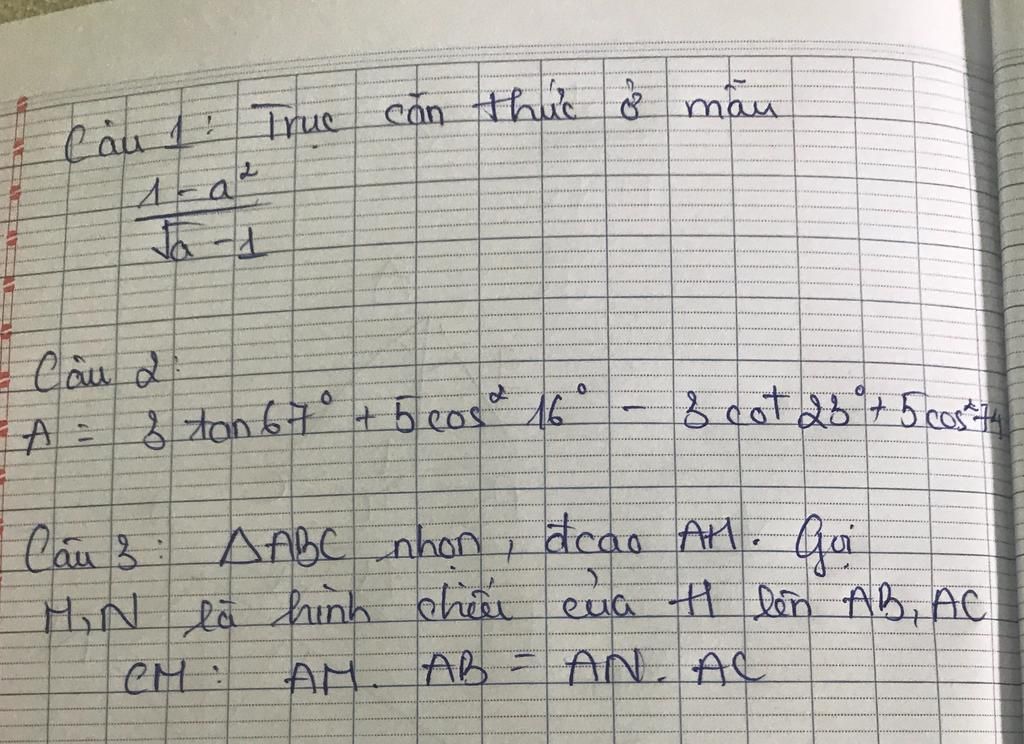 Câu 1: Trục căn thức ở mẫu
1-a²
√a-1
Câu 2:
A = 3 tan67° + 5cos² 16° - 3 cot 23° + 5cos²74
Câu 3: ΔABC nhọn, đcao AH. Gọi
M,N là hình chiếu của H lên AB, AC
CM: AM. AB = AN. AC